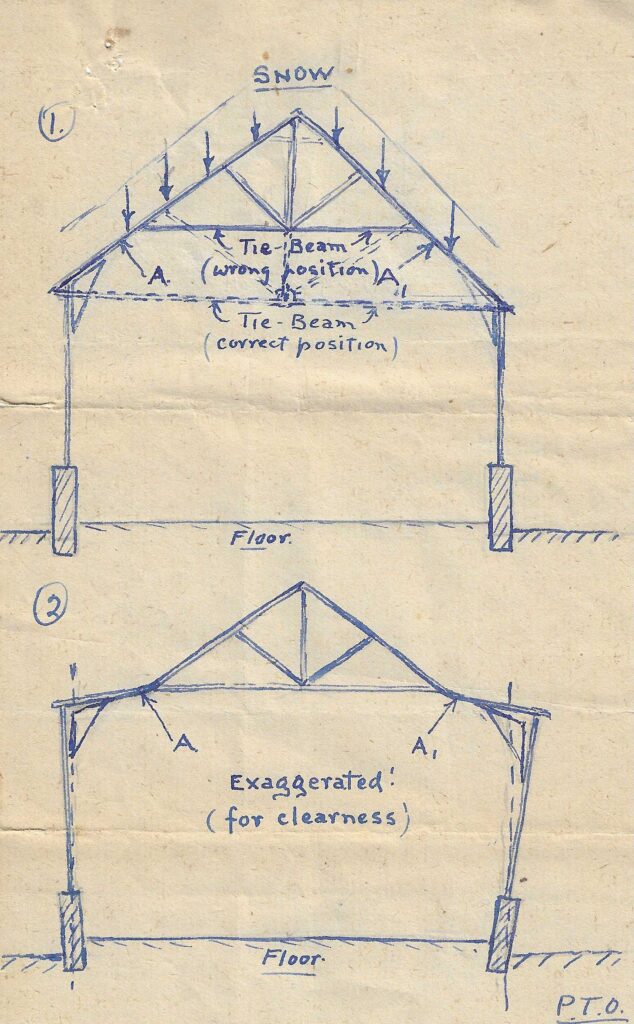 SNOW
1.
Tie-Beam
A. (wrong position) A1
Tie-Beam
(correct position)
Floor.
2
A A1
Exaggerated!
(for clearness)
Floor.
P.T.O.